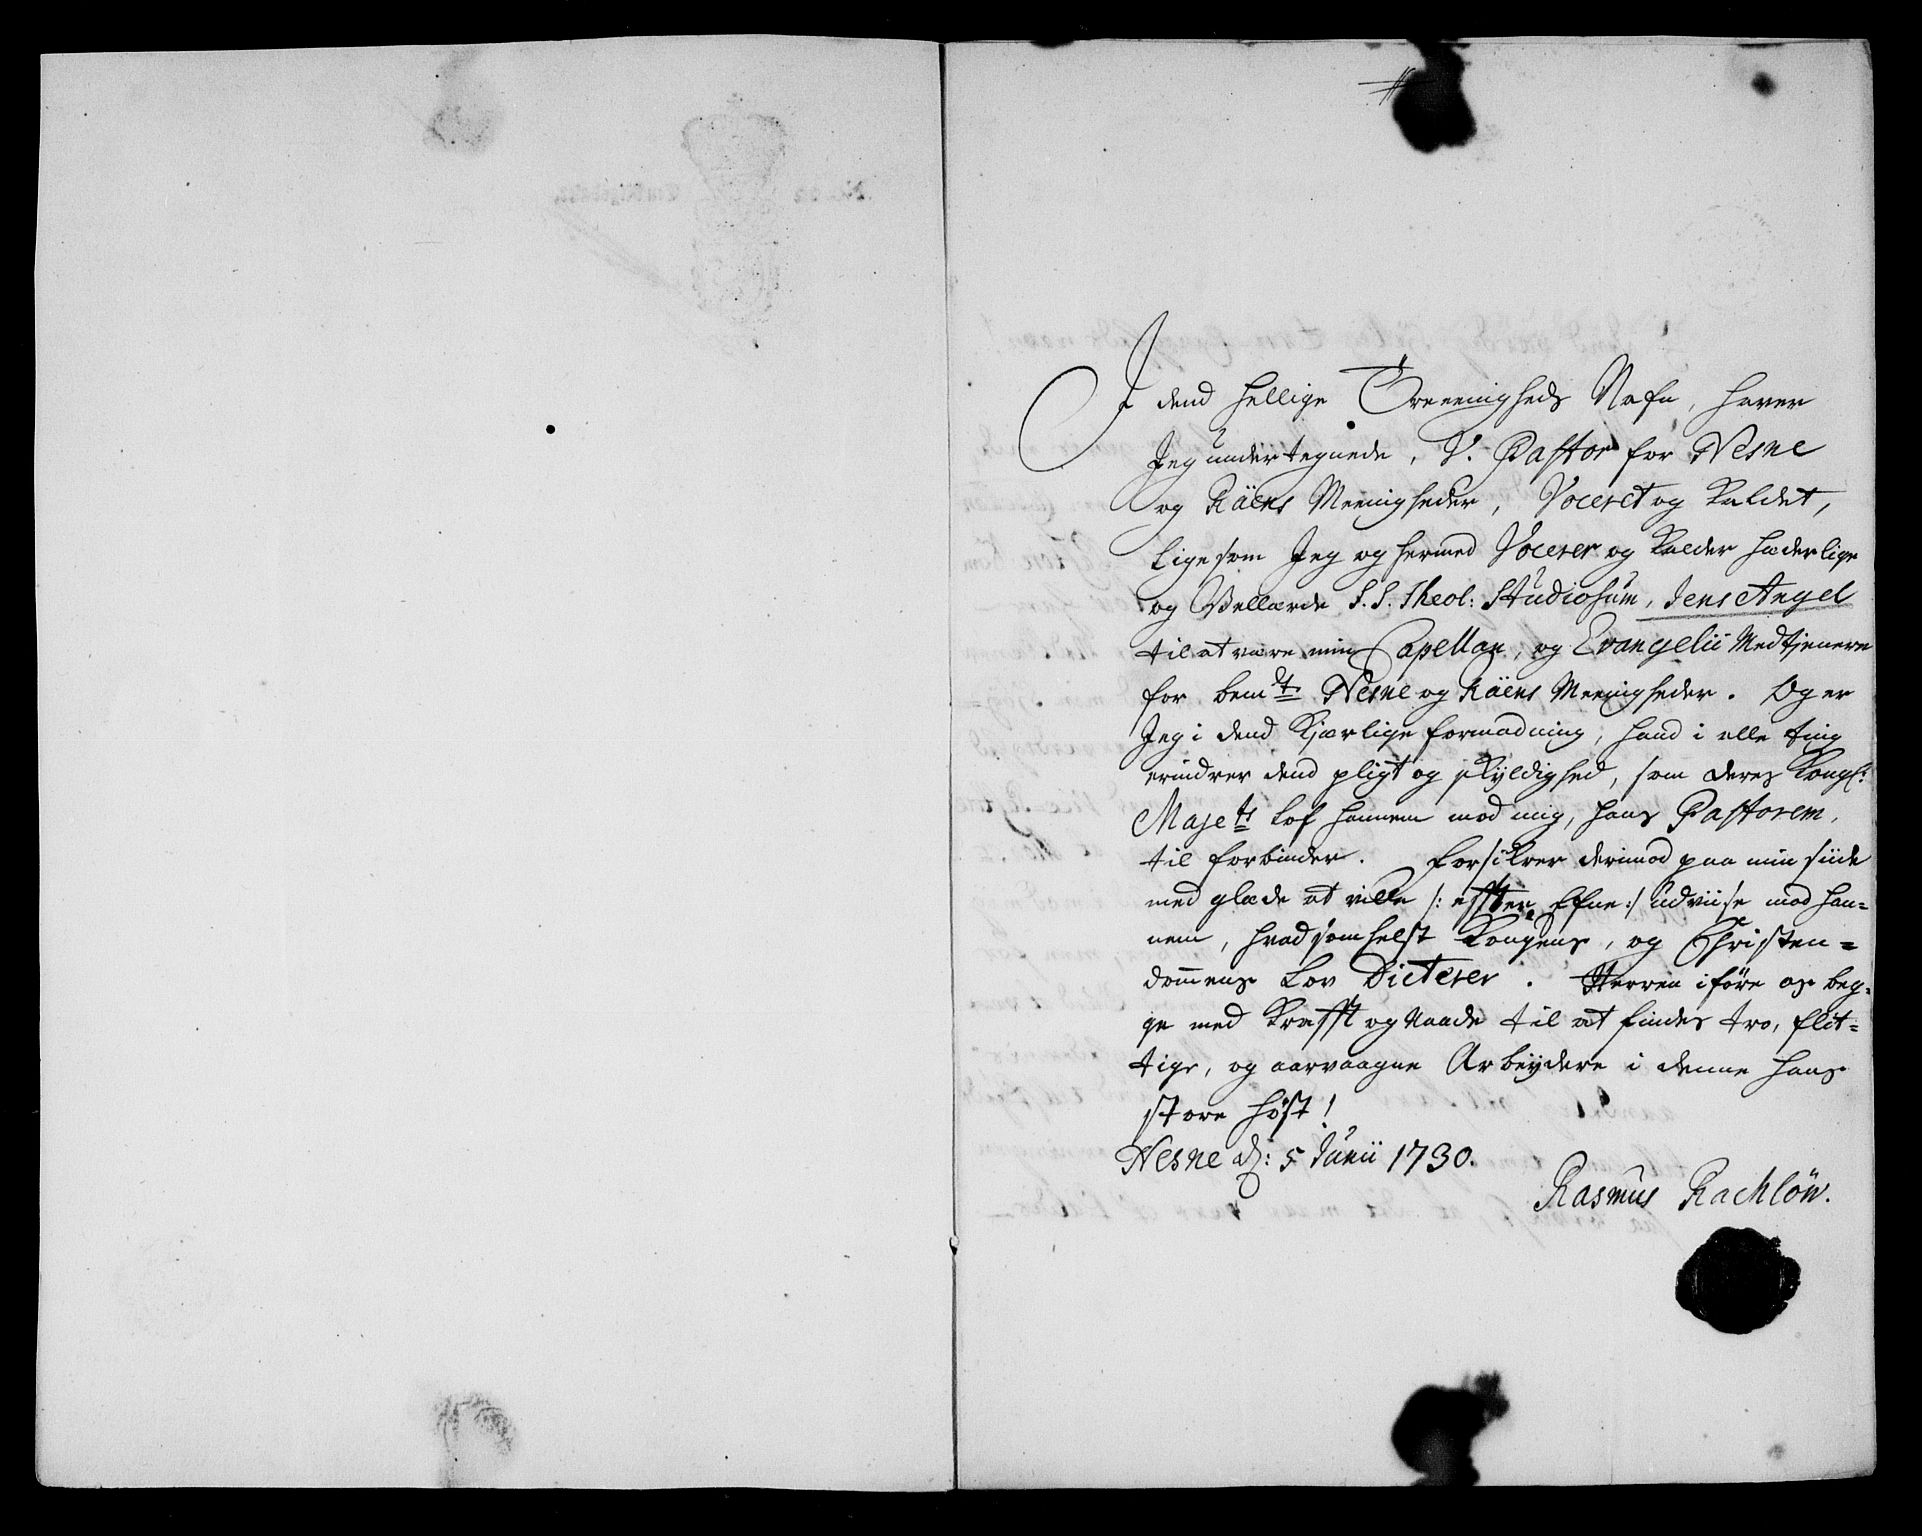 I dend hellige Treeenigheds Nafn, haver
Jeg undertegnede, V. Pastor for Nesne
og Räens Meenigheder, Voceret og kaldet,
ligesom Jeg og hermed Vocerer og kalder hæderlige
og Vellærde S.S. Theol: Studiosum, Jens Angel
til at være min Capellan, og Evangelii Medtjenere
for bemdte Nesne og Räens Meenigheder. Og er
Jeg i dend kjærlige formodning, hand i alle ting
erindrer dend pligt og skyldighed, som deres Kongl:
Majets Lof hannem mod mig, hans Pastorem,
til forbinder. Forsikrer derimod paa min siide
med glæde at ville /: effter Efne :/ udviise mod han=
nem, hvadsomhelst Kongens, og Christen=
dommens Lov Dicterer. Herren iføre os beg=
ge med Krafft og Naade til at findes tro, flit=
tige, og aarvaagne Arbeydere i denne hans
store Høst!
Nesne d: 5 Junii 1730.
Rasmus Rachlöw.